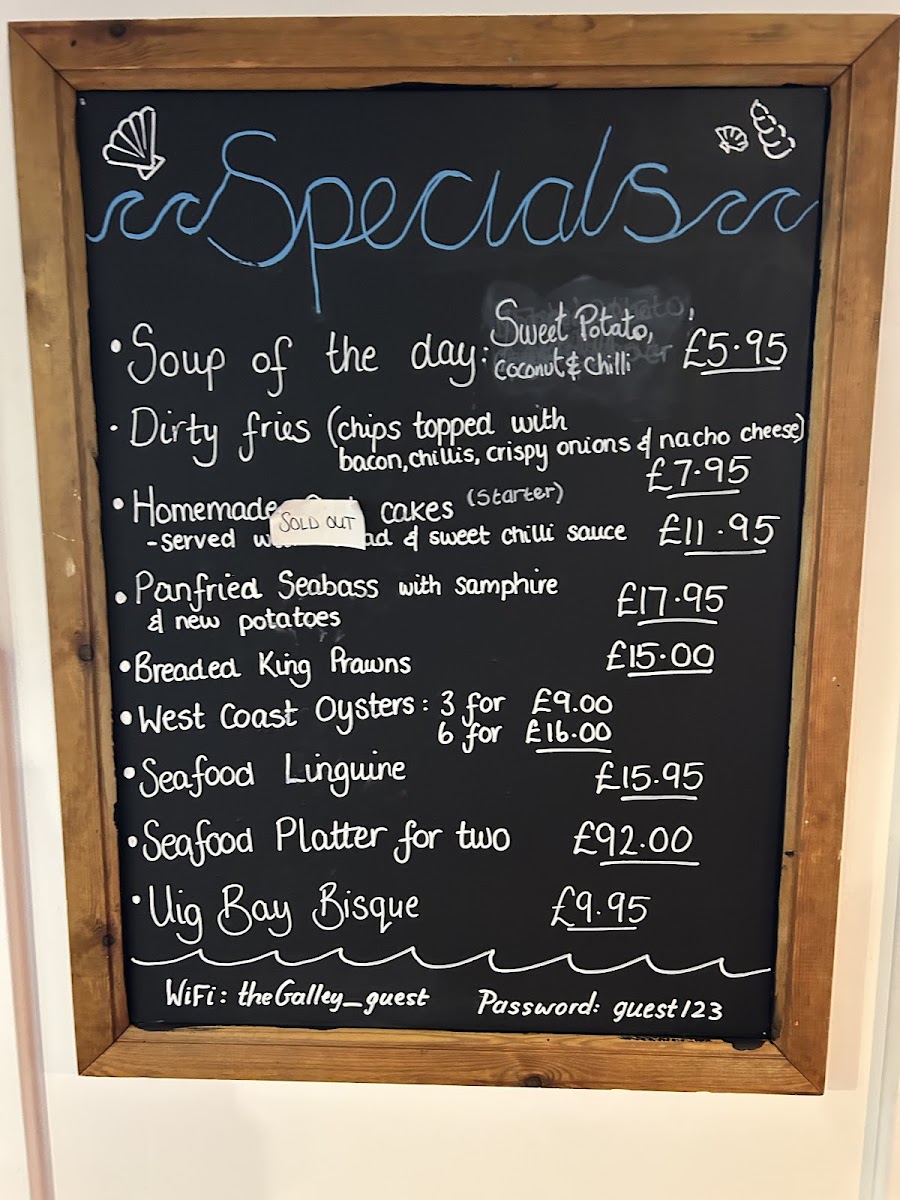 Specials
• Soup of the day: Sweet Potato, £5.95
coconut & chilli
• Dirty fries (chips topped with
bacon, chillis, crispy onions & nacho cheese)
£7.95
• Homemade cakes (Starter)
SOLD OUT
- served & sweet chilli sauce £11.95
• Panfried Seabass with samphire £17.95
& new potatoes
• Breaded King Prawns £15.00
• West Coast Oysters: 3 for £9.00
6 for £16.00
• Seafood Linguine £15.95
• Seafood Platter for two £92.00
• Uig Bay Bisque £9.95
WiFi: theGalley_guest Password: guest123